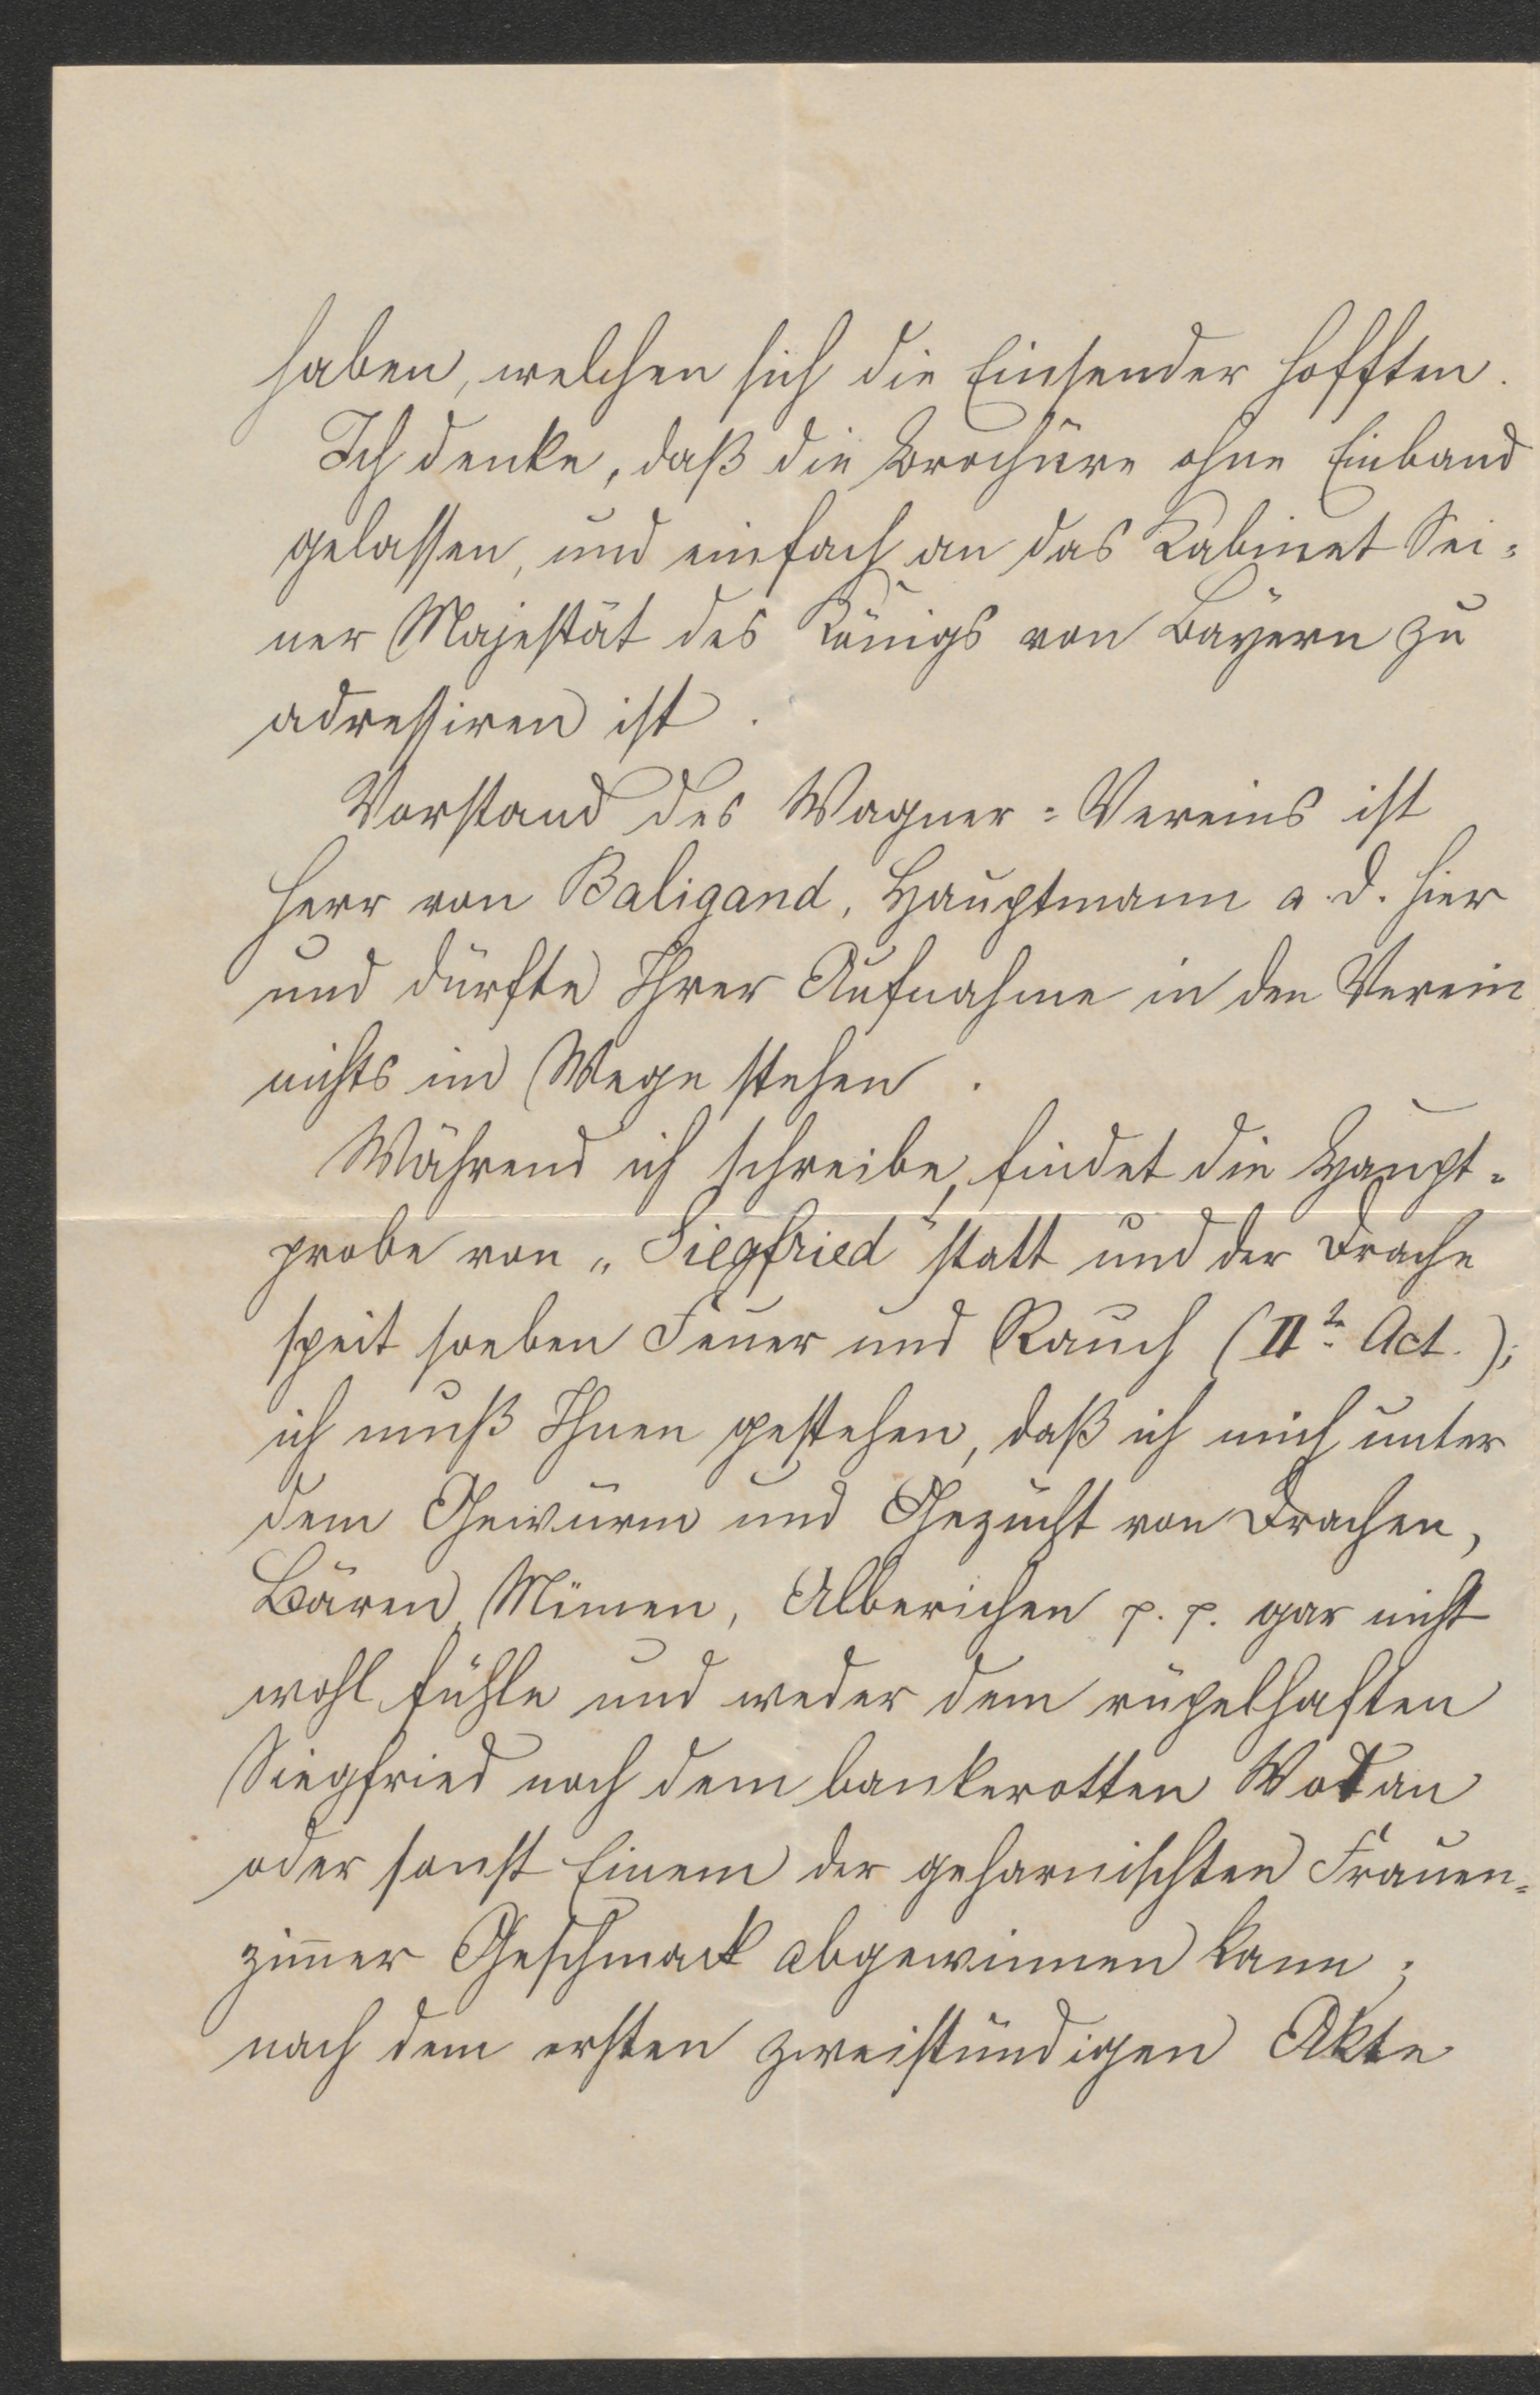 haben, welchen sich die Einsender hofften.
Ich denke, daß die Brochüre ohne Einband
gelassen, und einfach an das Kabinet Sei-
ner Majestät des Königs von Bayern zu
adressiren ist.
Vorstand des Wagner-Vereins ist
Herr von Baligand, Hauptmann a. D. hier
und dürfte Ihrer Aufnahme in den Verein
nichts im Wege stehen.
Während ich schreibe, findet die Haupt-
probe von „Siegfried" statt und der Drache
speit soeben Feuer und Rauch (II.te Act.);
ich muß Ihnen gestehen, daß ich mich unter
dem Gewürm und Gezücht von Drachen,
Bären, Mimen, Alberichen p. p. gar nicht
wohl fühle und weder dem rüpelhaften
Siegfried noch dem bankerotten Wotan
oder sonst Einem der geharnischten Frauen-
zim̄er Geschmack abgewinnen kann;
nach dem ersten zweistündigen Akte